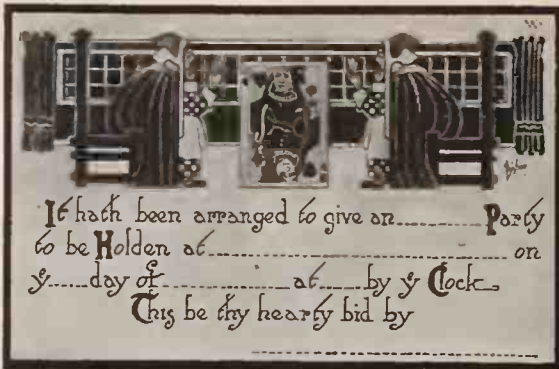 It hath been arranged to give an........ Party
to be Holden at.............................. on
ye.....day of...............at.....by ye Clock
This be thy hearty bid by